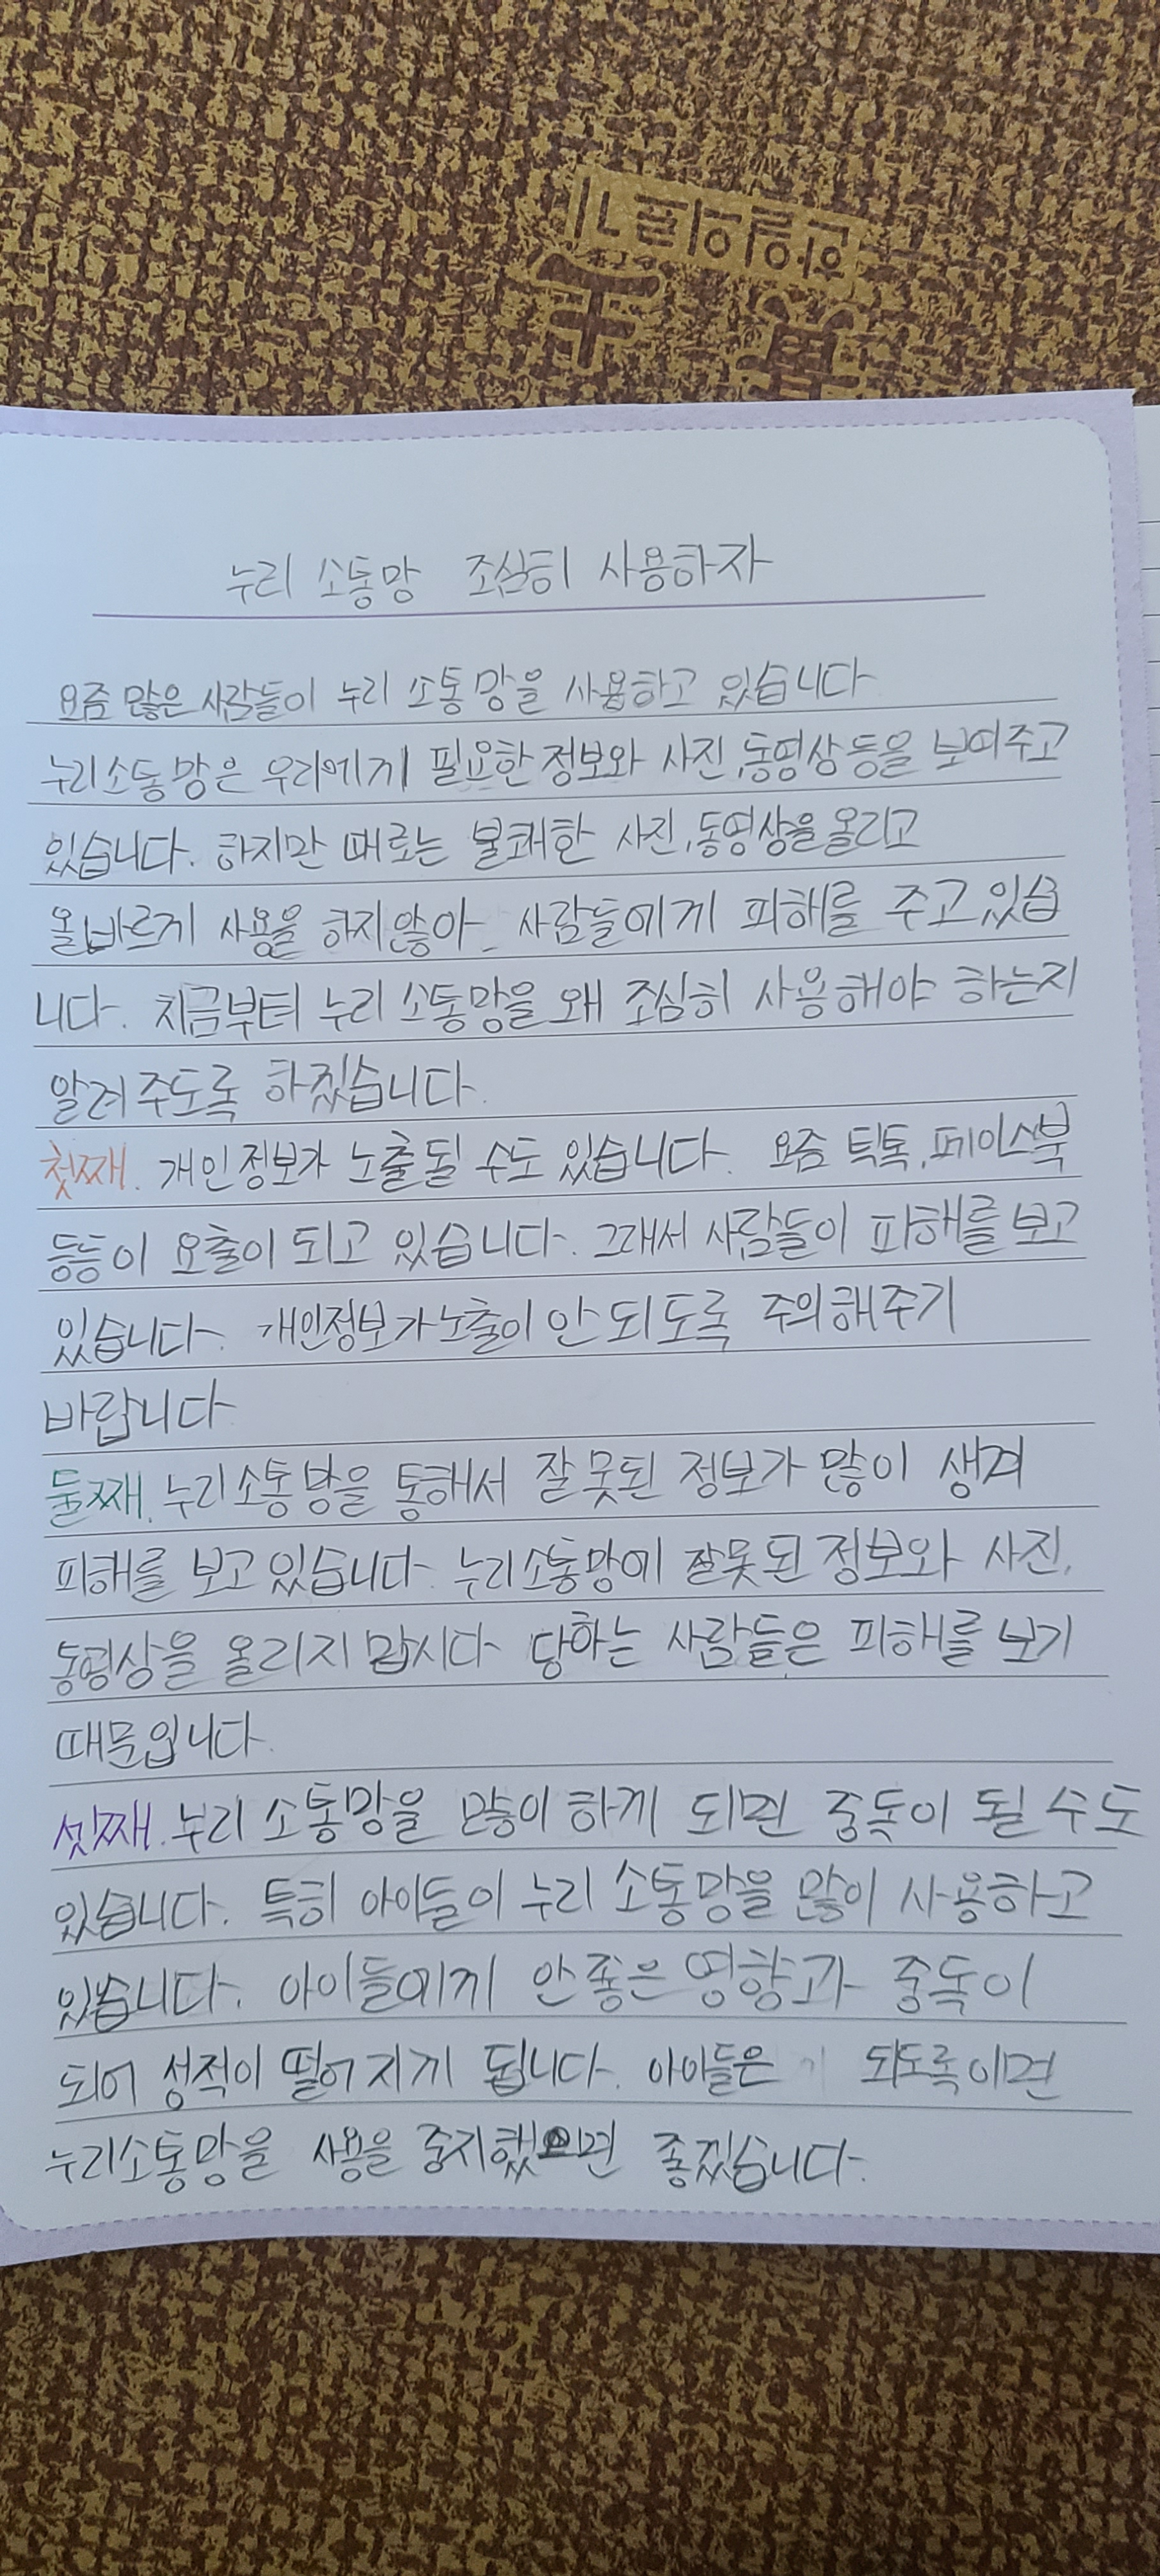 누리 소통망 조심히 사용하자
요즘 많은 사람들이 누리 소통망을 사용하고 있습니다
누리소통망은 우리에게 필요한 정보와 사진,동영상등을 보여주고
있습니다. 하지만 때로는 불쾌한 사진,동영상을올리고
올바르게 사용을 하지않아 사람들에게 피해를 주고있습
니다. 지금부터 누리 소통망을 왜 조심히 사용해야 하는지
알려주도록 하겠습니다.
첫째. 개인정보가 노출될 수도 있습니다. 요즘 틱톡,페이스북
등등이 요출이 되고 있습니다. 그래서 사람들이 피해를 보고
있습니다. 개인정보가노출이 안되도록 주의해주기
바랍니다
둘째. 누리소통방을 통해서 잘못된 정보가 많이 생겨
피해를 보고있습니다. 누리소통망에 잘못된 정보와 사진,
동영상을 올리지맙시다 당하는 사람들은 피해를 보기
때문입니다.
셋째. 누리소통망을 많이하게 되면 중독이 될수도
있습니다. 특히 아이들이 누리 소통망을 많이 사용하고
있습니다. 아이들에게 안좋은 영향과 중독이
되어 성적이 떨어지게 됩니다. 아이들은 되도록이면
누리소통망을 사용을 중지했으면 좋겠습니다.